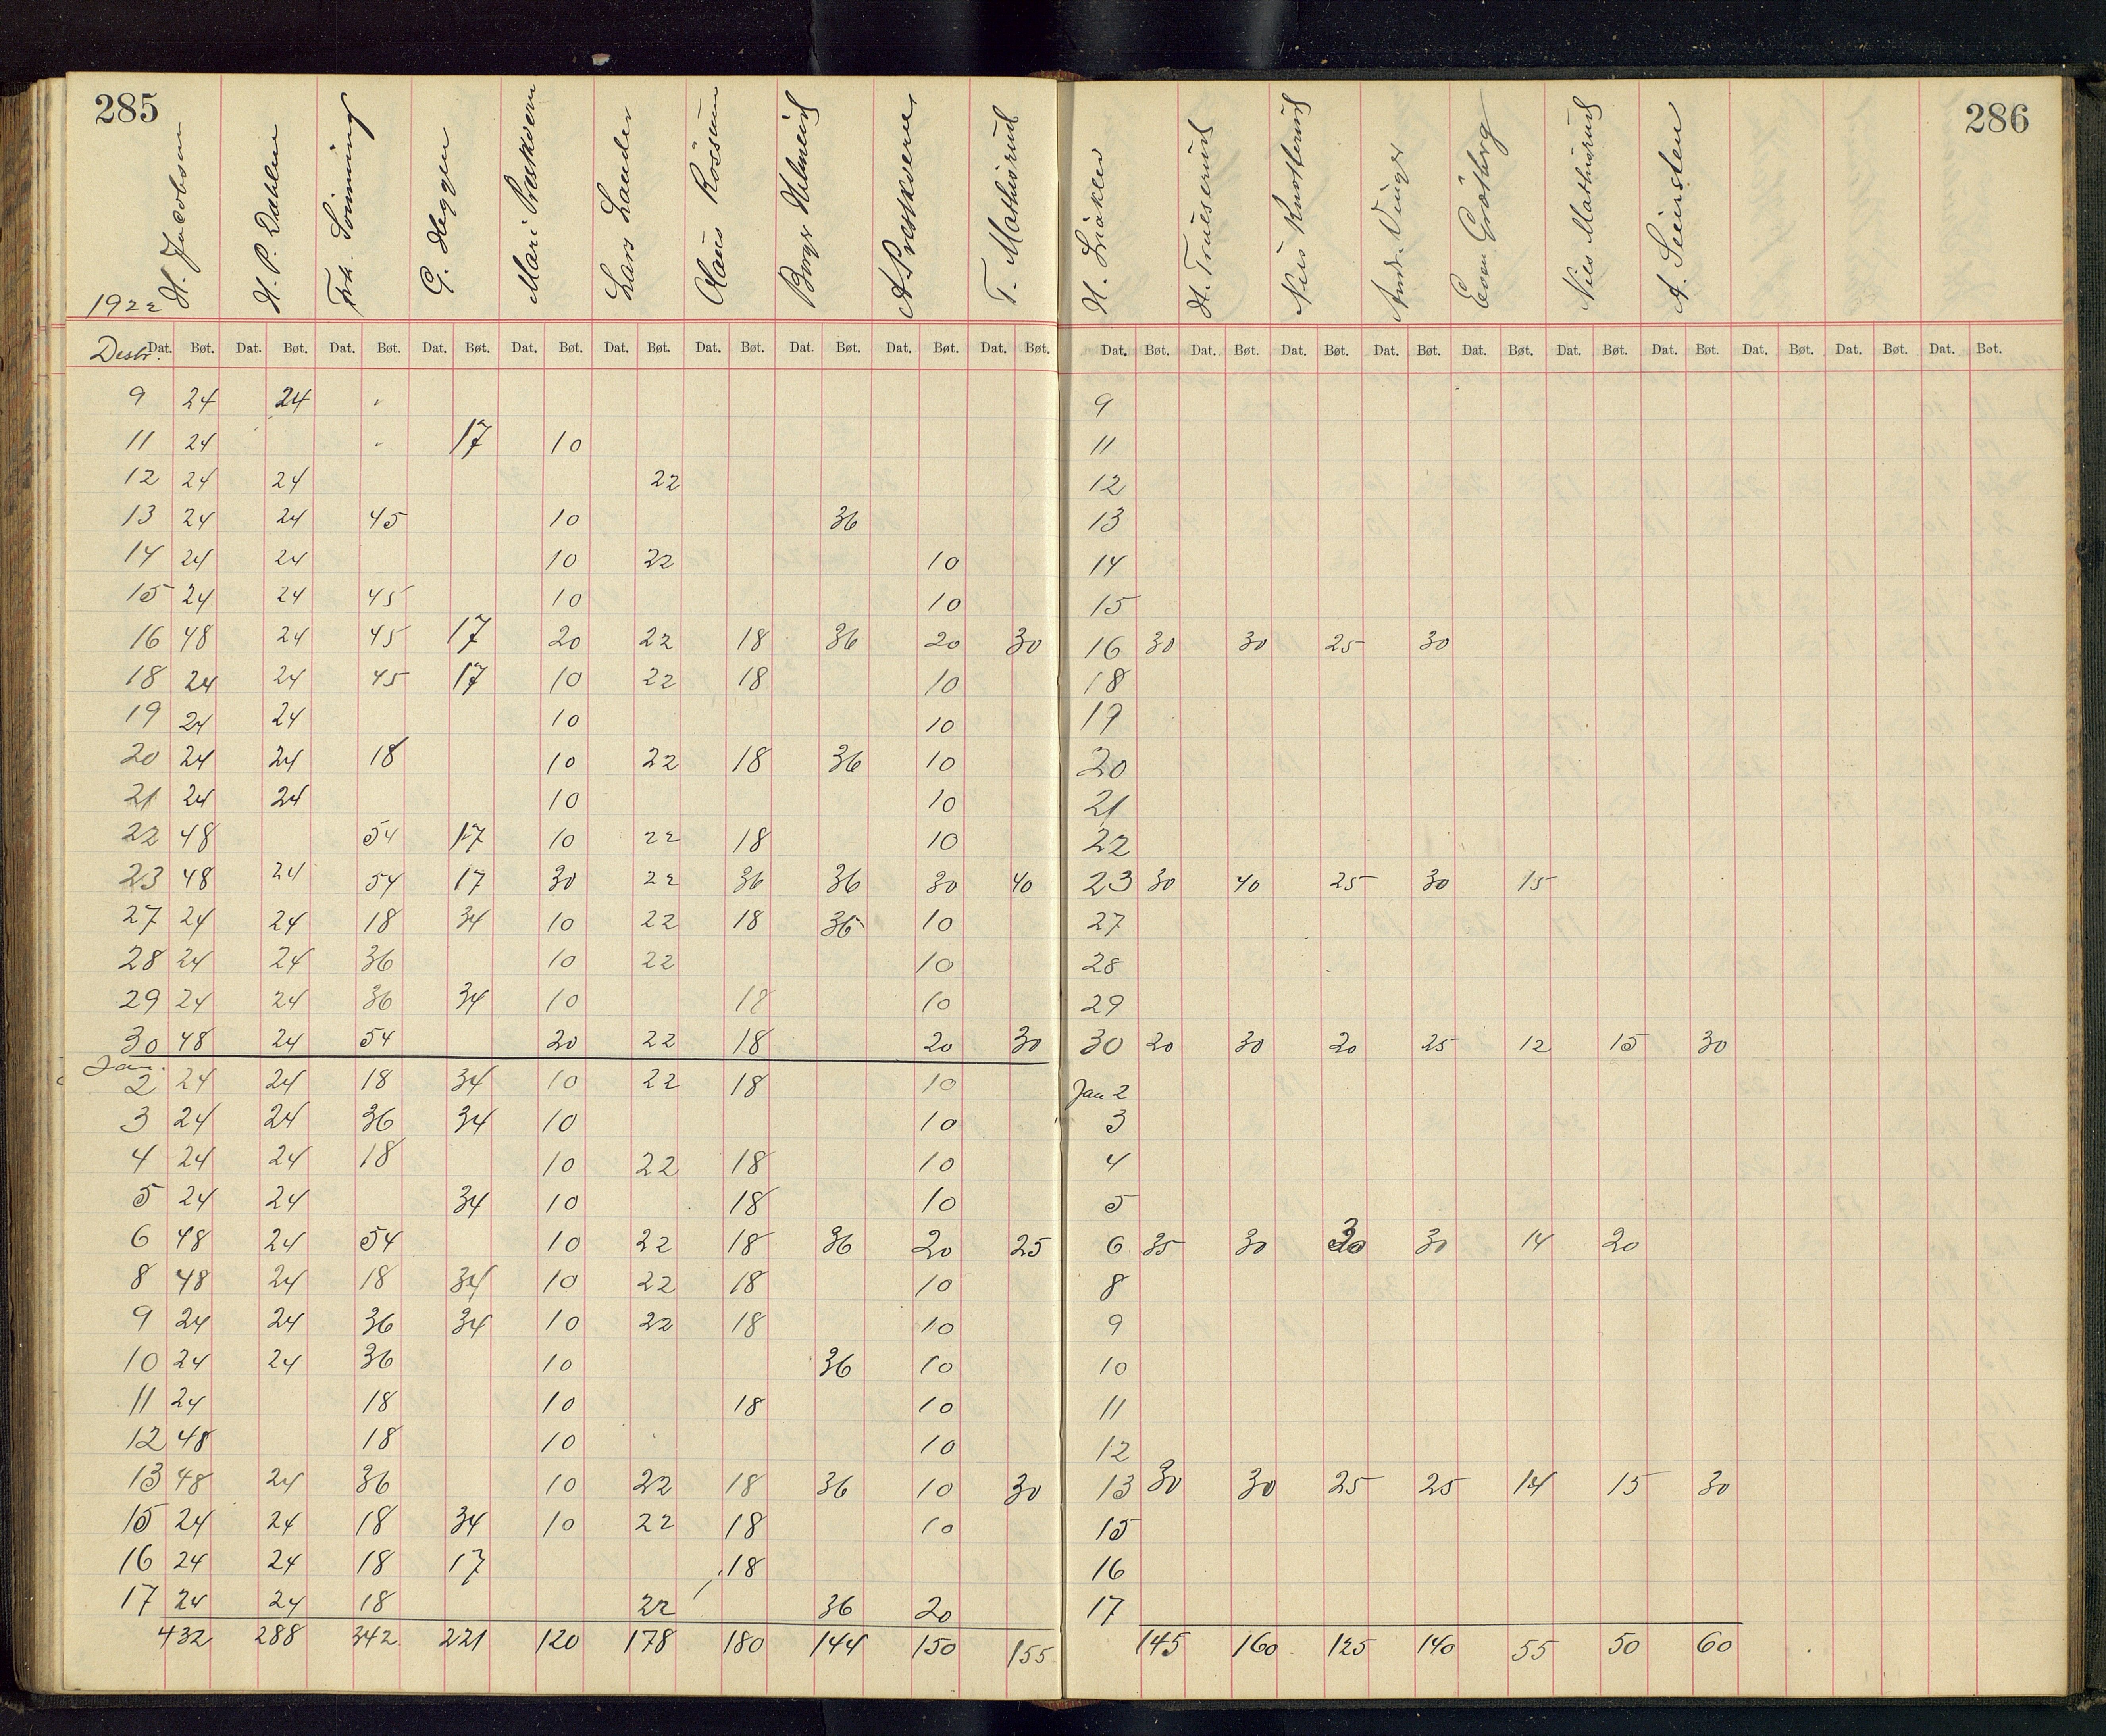 285
1922 H. Jacobsen H. P. Dahlen Frk. G. Heggen Mari Præstkvern Lars Lander Olaus Rossum Borger A. Præstkvern T. Mathisrud
Desbr. Dat. Bøt. Dat. Bøt. Dat. Bøt. Dat. Bøt. Dat. Bøt. Dat. Bøt. Dat. Bøt. Dat. Bøt. Dat. Bøt. Dat. Bøt.
9 24 24 "
11 24 " 17 10
12 24 24 22
13 24 24 45 10 36
14 24 24 10 22 10
15 24 24 45 10 10
16 48 24 45 17 20 22 18 36 20 30
18 24 24 45 17 10 22 18 10
19 24 24 10 10
20 24 24 18 10 22 18 36 10
21 24 24 10 10
22 48 54 17 10 22 18 10
23 48 24 54 17 30 22 36 36 30 40
27 24 24 18 34 10 22 18 36 10
28 24 24 36 10 22 10
29 24 24 36 34 10 18 10
30 48 24 54 20 22 18 20 30
Jan.
2 24 24 18 34 10 22 18 10
3 24 24 36 34 10 10
4 24 24 18 10 22 18 10
5 24 24 34 10 18 10
6 48 24 54 10 22 18 36 20 25
8 48 24 18 34 10 22 18 10
9 24 24 36 34 10 22 18 10
10 24 24 36 10 36 10
11 24 18 10 18 10
12 48 18 10 10
13 48 24 36 10 22 18 36 10 30
15 24 24 18 34 10 22 18 10
16 24 24 18 17 18
17 24 24 18 22 36 20
432 288 342 221 120 178 180 144 150 155
286
H. H. Trulserud Nils Knutterud Vinger Even Grøtberg Nils Mathisrud A. Seiersten
Dat. Bøt. Dat. Bøt. Dat. Bøt. Dat. Bøt. Dat. Bøt. Dat. Bøt. Dat. Bøt. Dat. Bøt. Dat. Bøt. Dat. Bøt.
9
11
12
13
14
15
16 30 30 25 30
18
19
20
21
22
23 30 40 25 30 15
27
28
29
30 20 30 20 25 12 15 30
Jan 2
3
4
5
6 35 30 30 30 14 20
8
9
10
11
12
13 30 30 25 25 14 15 30
15
16
17
145 160 125 140 55 50 60